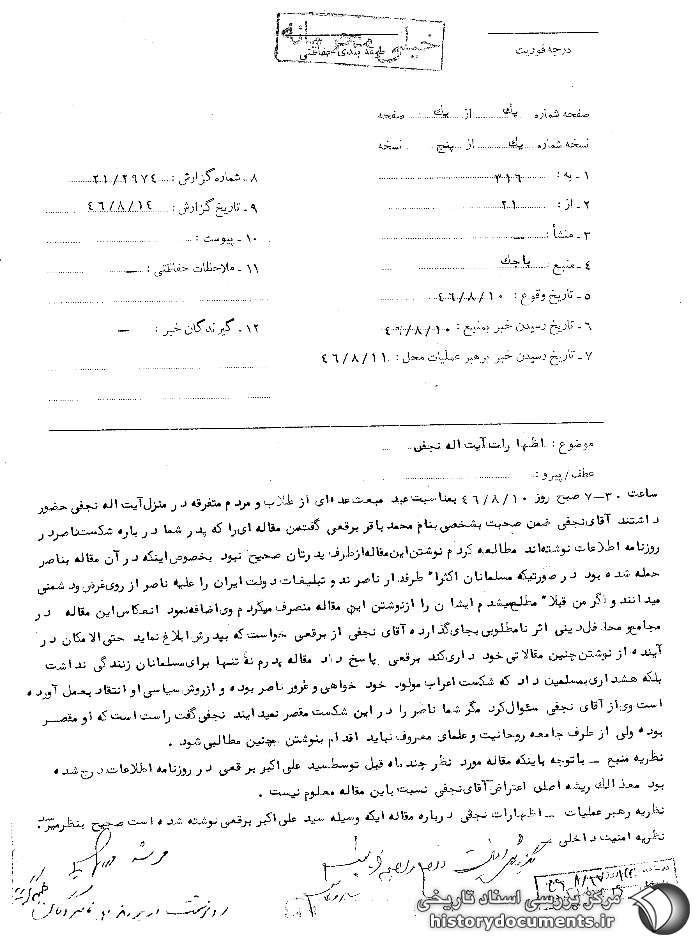 خیلی محرمانه
طبقه بندی حفاظتی
درجه فوریت
صفحه شماره یک از یک صفحه
نسخه شماره یک از پنج نسخه
۱ـ به : ۳۱۶
۲ـ از : ۲۱
۳ـ منشأ : —
۴ـ منبع پاجک
۵ـ تاریخ وقوع : ۴۶/۸/۱۰
۶ـ تاریخ رسیدن خبر بمنبع : ۴۶/۸/۱۰
۷ـ تاریخ رسیدن خبر برهبر عملیات محل : ۴۶/۸/۱۱
۸ـ شماره گزارش : ۲۱/۲۹۷۴
۹ـ تاریخ گزارش : ۴۶/۸/۱۴
۱۰ـ پیوست :
۱۱ـ ملاحظات حفاظتی : —
۱۲ـ گیرندگان خبر : —
موضوع : اظهارات آیت اله نجفی
عطف/پیرو :
ساعت ۳۰ـ۷ صبح روز ۴۶/۸/۱۰ بمناسبت عید مبعث عده‌ای از طلاب و مردم متفرقه در منزل آیت اله نجفی حضور
داشتند آقای نجفی ضمن صحبت بشخصی بنام محمد باقر برقعی گفت من مقاله ای را که پدر شما در باره شکست ناصر در
روزنامه اطلاعات نوشته‌اند مطالعه کردم نوشتن این مقاله از طرف پدرتان صحیح نبود بخصوص اینکه در آن مقاله بناصر
حمله شده بود در صورتیکه مسلمانان اکثرا" طرفدار ناصرند و تبلیغات دولت ایران را علیه ناصر از روی غرض و دشمنی
میدانند و اگر من قبلا" مطلع میشدم ایشان را از نوشتن این مقاله منصرف میکردم وی اضافه نمود انعکاس این مقاله در
مجامع و محافل دینی اثر نامطلوبی بجای گذارده آقای نجفی از برقعی خواست که بپدرش ابلاغ نماید حتی الامکان در
آینده از نوشتن چنین مقالاتی خود داری کند برقعی پاسخ داد مقاله پدرم نه تنها برای مسلمانان زنندگی نداشت
بلکه هشداری بمسلمین داد که شکست اعراب مولود خود خواهی و غرور ناصر بوده و از روش سیاسی او انتقاد بعمل آورده
است وی از آقای نجفی سئوال کرد مگر شما ناصر را در این شکست مقصر نمیدانید نجفی گفت راست است که او مقصر
بوده ولی از طرف جامعه روحانیت و علمای معروف نباید اقدام بنوشتن چنین مطالبی شود .
نظریه منبع ـ با توجه باینکه مقاله مورد نظر چند ماه قبل توسط سید علی اکبر برقعی در روزنامه اطلاعات درج شده
بود معذالک ریشه اصلی اعتراض آقای نجفی نسبت باین مقاله معلوم نیست .
نظریه رهبر عملیات ـ اظهارات نجفی درباره مقاله ایکه وسیله سید علی اکبر برقعی نوشته شده است صحیح بنظر میرسد .
نظریه امنیت داخلی ـ
مرکز بررسی اسناد تاریخی
historydocuments.ir